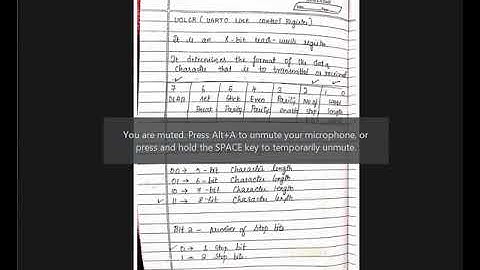 U0LCR (UART0 Line Control Register)
It is an 8-bit read-write register
It determines the format of the data
character that is to transmitted or received
7 6 5 4 3 2 1 0
DLAB Set Stick Even Parity No. of word
Break Parity Parity enable stop length
You are muted. Press Alt+A to unmute your microphone, or
press and hold the SPACE key to temporarily unmute.
00 → 5-bit Character length
01 → 6-bit Character length
10 → 7-bit Character length
11 → 8-bit Character length
Bit 2 - Number of Stop bits
0 → 1 Stop bit
1 → 2 Stop bits